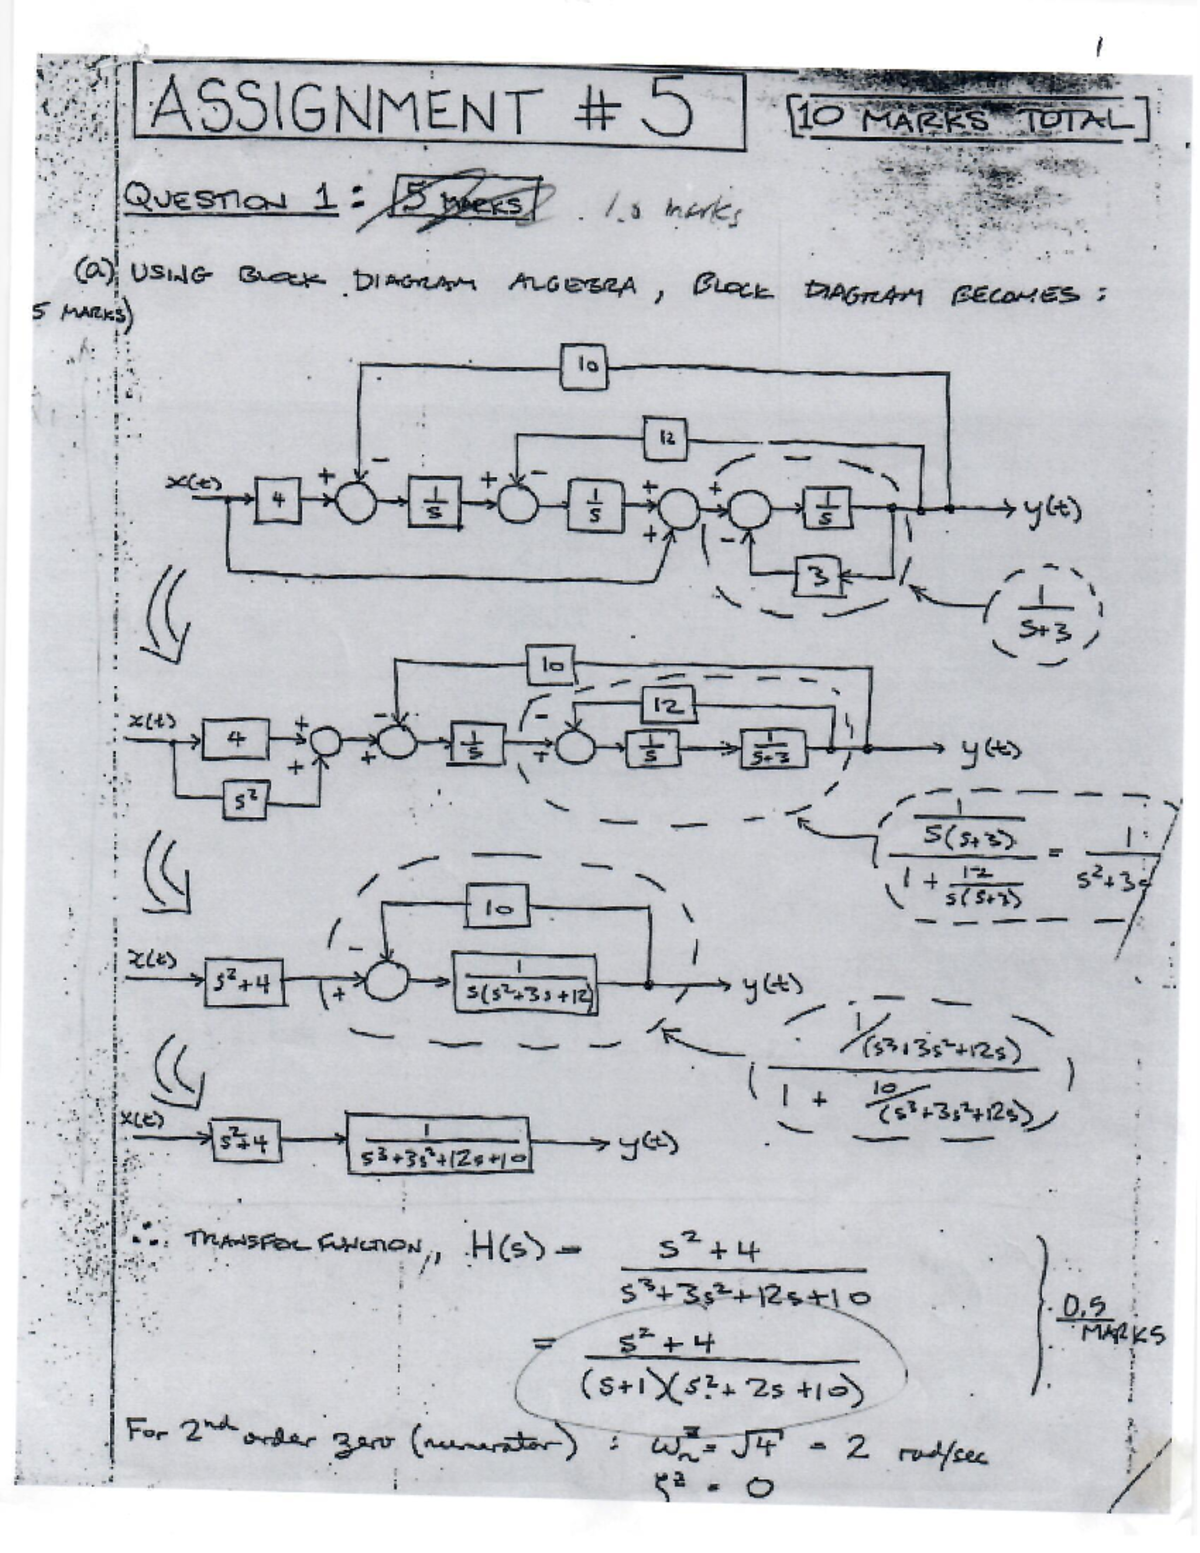 1
ASSIGNMENT # 5 [10 MARKS TOTAL]
QUESTION 1: 5 MARKS 1.0 marks
(a) USING BLOCK DIAGRAM ALGEBRA, BLOCK DIAGRAM BECOMES:
5 MARKS)
10
12
x(t) 4 + - 1/s + - 1/s + + + - 1/s y(t)
3
1/(s+3)
10
12
x(t) 4 + + - + 1/s - + 1/s 1/(s+3) y(t)
s²
(1/(s(s+3)))/(1 + 12/(s(s+3))) = 1/(s²+3s
10
x(t) s²+4 - + 1/(s(s²+3s+12)) y(t)
(1/(s³+3s²+12s))/(1 + 10/(s³+3s²+12s))
x(t) s²+4 1/(s³+3s²+12s+10) y(t)
∴ TRANSFER FUNCTION, H(s) = (s²+4)/(s³+3s²+12s+10)
= (s²+4)/((s+1)(s²+2s+10))
0.5 MARKS
For 2nd order zero (numerator) : ωₙᶻ = √4 = 2 rad/sec
ζᶻ = 0